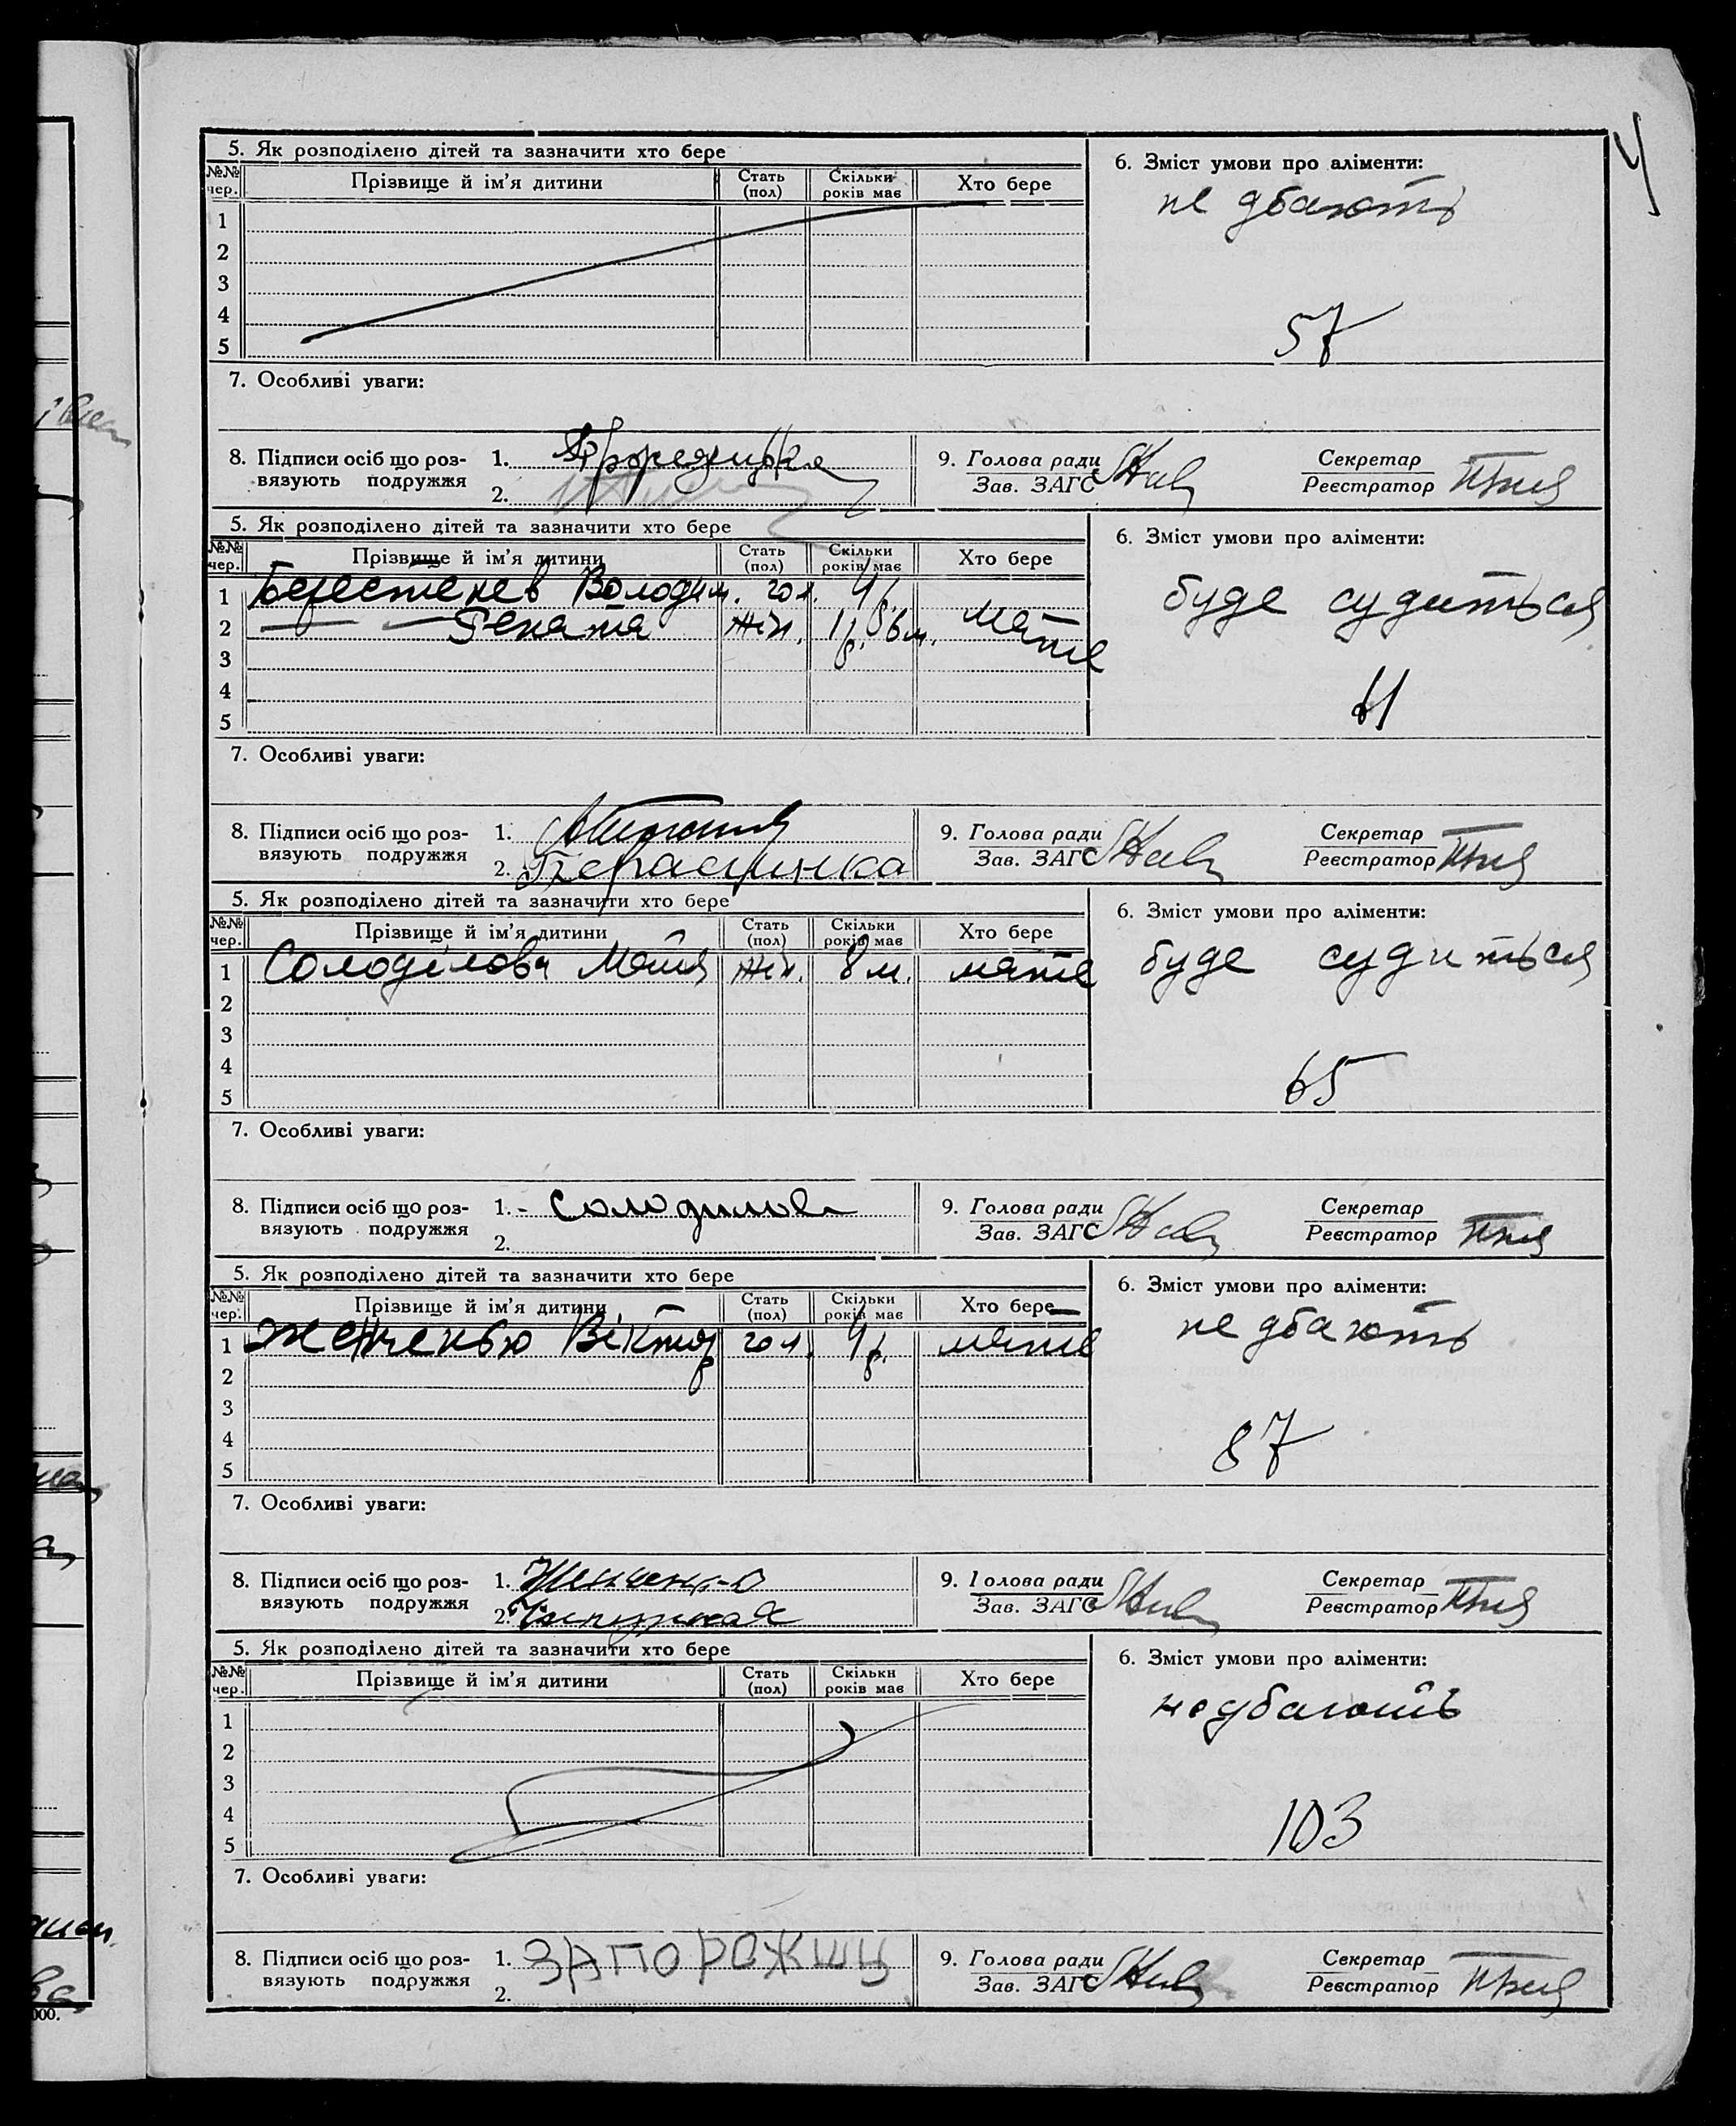 4
5. Як розподілено дітей та зазначити хто бере
6. Зміст умови про аліменти:
№№ чер. Прізвище й ім'я дитини Стать (пол) Скільки років має Хто бере
не дбають
1
2
3
4
5
57
7. Особливі уваги:
8. Підписи осіб що роз-вязують подружжя 1.
2.
9. Голова ради Зав. ЗАГС
Секретар Реєстратор
5. Як розподілено дітей та зазначити хто бере
6. Зміст умови про аліменти:
№№ чер. Прізвище й ім'я дитини Стать (пол) Скільки років має Хто бере
1 Володим. чол. 4 р.
буде судиться
2 Рената жін. 1 р. 6 м. мати
3
4
5
61
7. Особливі уваги:
8. Підписи осіб що роз-вязують подружжя 1.
2.
9. Голова ради Зав. ЗАГС
Секретар Реєстратор
5. Як розподілено дітей та зазначити хто бере
6. Зміст умови про аліменти:
№№ чер. Прізвище й ім'я дитини Стать (пол) Скільки років має Хто бере
1 Солоділова Майя жін. 8 м. мати
буде судиться
2
3
4
5
65
7. Особливі уваги:
8. Підписи осіб що роз-вязують подружжя 1. Солодилова
2.
9. Голова ради Зав. ЗАГС
Секретар Реєстратор
5. Як розподілено дітей та зазначити хто бере
6. Зміст умови про аліменти:
№№ чер. Прізвище й ім'я дитини Стать (пол) Скільки років має Хто бере
1 Віктор чол. 4 р. мати
не дбають
2
3
4
5
87
7. Особливі уваги:
8. Підписи осіб що роз-вязують подружжя 1.
2.
9. Голова ради Зав. ЗАГС
Секретар Реєстратор
5. Як розподілено дітей та зазначити хто бере
6. Зміст умови про аліменти:
№№ чер. Прізвище й ім'я дитини Стать (пол) Скільки років має Хто бере
не дбають
1
2
3
4
5
103
7. Особливі уваги:
8. Підписи осіб що роз-вязують подружжя 1. ЗАПОРОЖШЦ
2.
9. Голова ради Зав. ЗАГС
Секретар Реєстратор
000.